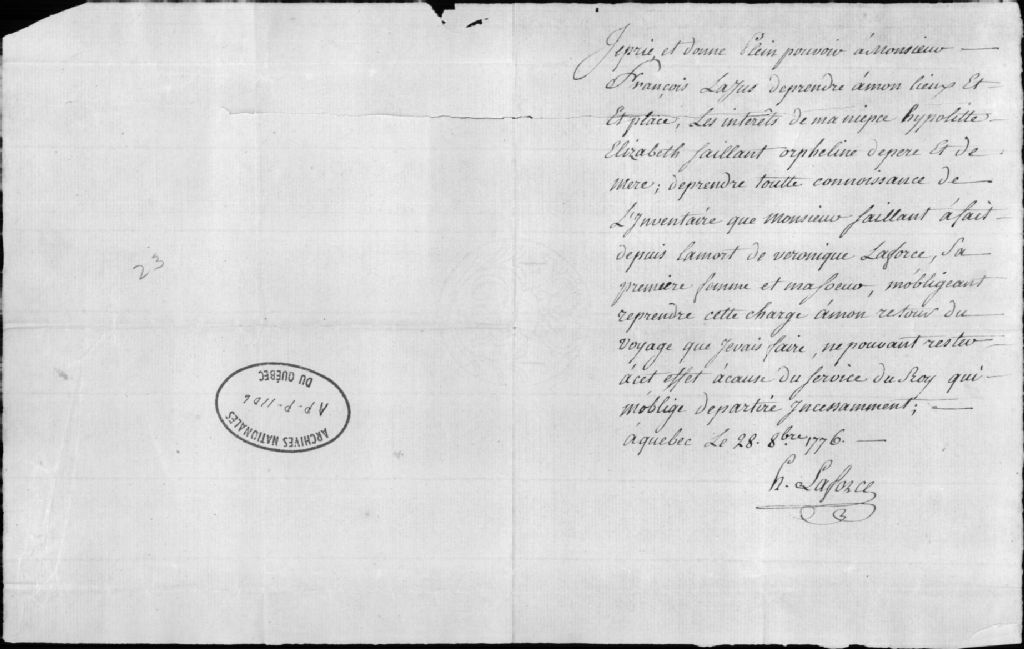 Jeprie et donne Plein pouvoir á Monsieur —
François LaJus deprendre ámon lieux Et-
Et place, Les interêts de ma niepce hypolitte-
Elizabeth saillant orpheline depere Et de
mere; deprendre toutte connoissance de —
L'Inventaire que monsieur saillant á fait-
depuis lamort de veronique Laforce, Sa
première femme et masoeur, m'obligeant
reprendre cette charge ámon retour du
voyage que Jevais faire, ne pouvant rester-
ácet effet ácause du service du Roy qui-
m'oblige departire Incessamment; —
áquebec Le 28. 8bre 1776. —
h. Laforce
23
ARCHIVES NATIONALES
DU QUÉBEC
AP-P-1106